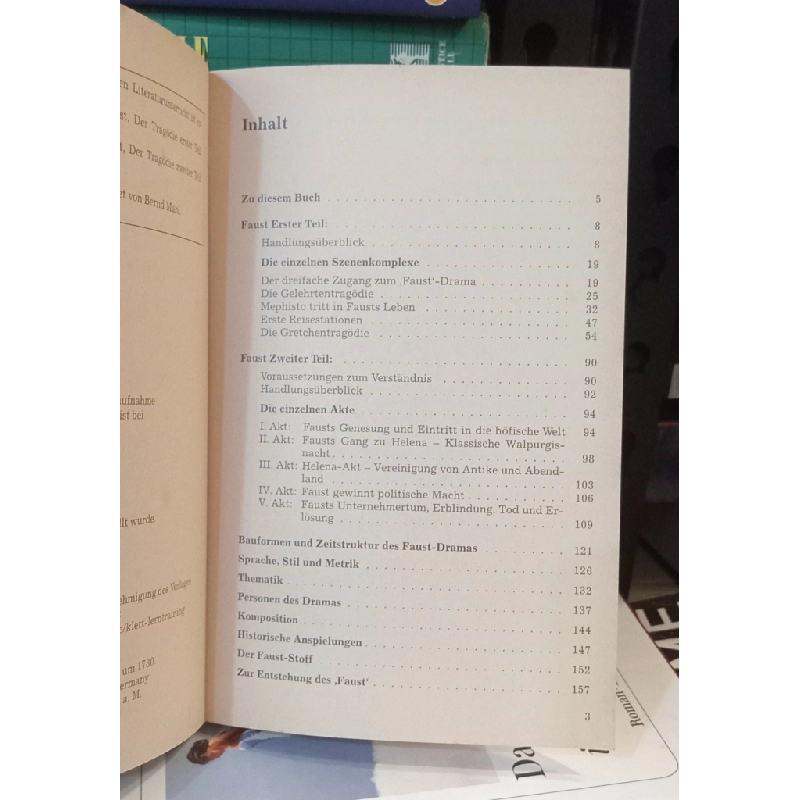 en Literaturunterricht ist in
st, Der Tragödie erster Teil
t, Der Tragödie zweiter Teil
et von Bernd Mahl.
ufnahme
ist bei
ft wurde.
hmigung des Verlages
/klett-lerntraining
um 1730.
ermany
a. M.
Inhalt
Zu diesem Buch . . . 5
Faust Erster Teil: . . . 8
Handlungsüberblick . . . 8
Die einzelnen Szenenkomplexe . . . 19
Der dreifache Zugang zum ‚Faust‘-Drama . . . 19
Die Gelehrtentragödie . . . 25
Mephisto tritt in Fausts Leben . . . 32
Erste Reisestationen . . . 47
Die Gretchentragödie . . . 54
Faust Zweiter Teil: . . . 90
Voraussetzungen zum Verständnis . . . 90
Handlungsüberblick . . . 92
Die einzelnen Akte . . . 94
I. Akt: Fausts Genesung und Eintritt in die höfische Welt 94
II. Akt: Fausts Gang zu Helena – Klassische Walpurgis-
nacht . . . 98
III. Akt: Helena-Akt – Vereinigung von Antike und Abend-
land . . . 103
IV. Akt: Faust gewinnt politische Macht . . . 106
V. Akt: Fausts Unternehmertum, Erblindung, Tod und Er-
lösung . . . 109
Bauformen und Zeitstruktur des Faust-Dramas . . . 121
Sprache, Stil und Metrik . . . 126
Thematik . . . 132
Personen des Dramas . . . 137
Komposition . . . 144
Historische Anspielungen . . . 147
Der Faust-Stoff . . . 152
Zur Entstehung des ‚Faust‘ . . . 157
3
Roman
Da